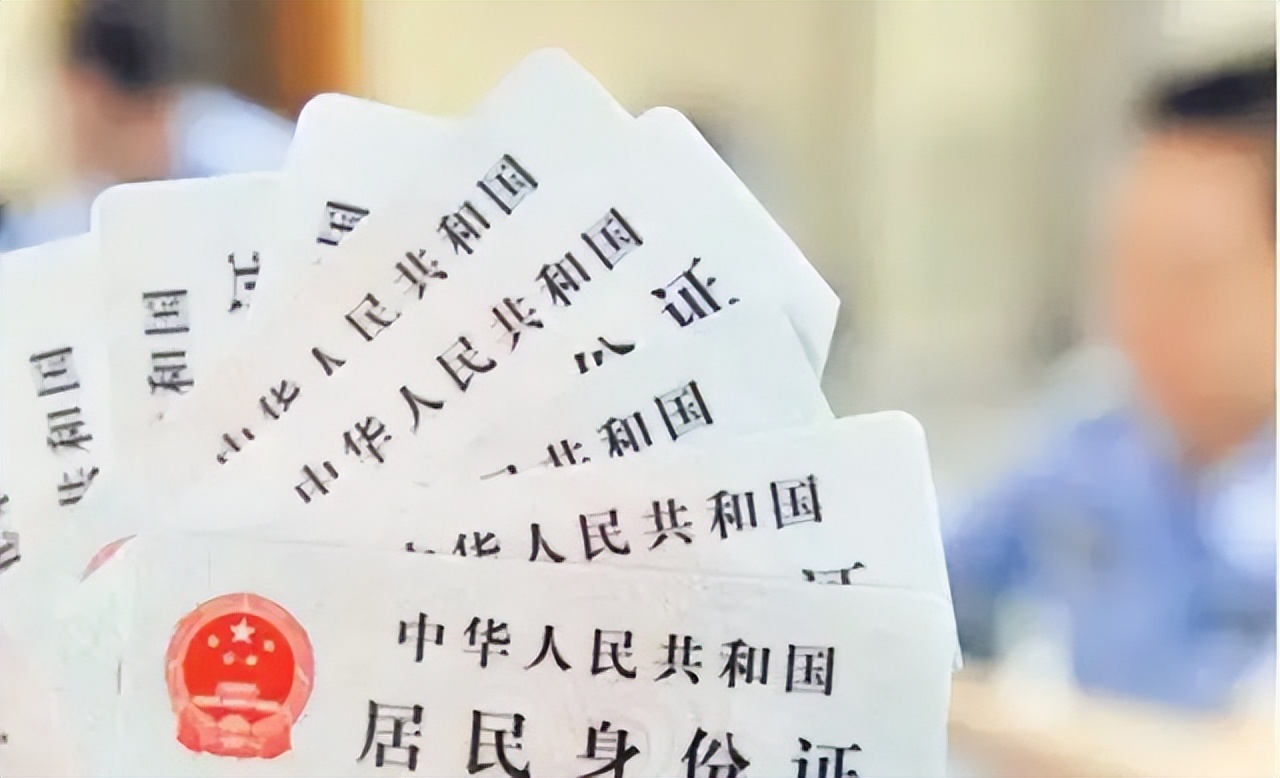 共和国
和国
国
中华人民共和国
中华人民共和国
证
共和国
华人民共和国
中华人民共和国
居民身份证